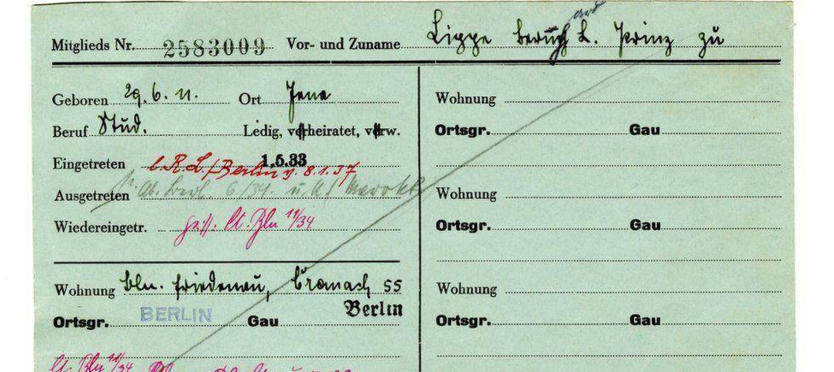 Mitglieds Nr. 2583009 Vor- und Zuname Lippe Bernh. L. Prinz zu
Geboren 29.6.11. Ort Jena
Beruf Stud. Ledig, verheiratet, verw.
Eingetreten 1.5.33
l.R.L./Berlin v. 8.1.37
Ausgetreten 6/34. u.
Wiedereingetr. lt. Bln 11/34
Wohnung Bln. Friedenau, 55
Ortsgr. BERLIN Gau Berlin
lt. Bln 11/34
Wohnung
Ortsgr. Gau
Wohnung
Ortsgr. Gau
Wohnung
Ortsgr. Gau